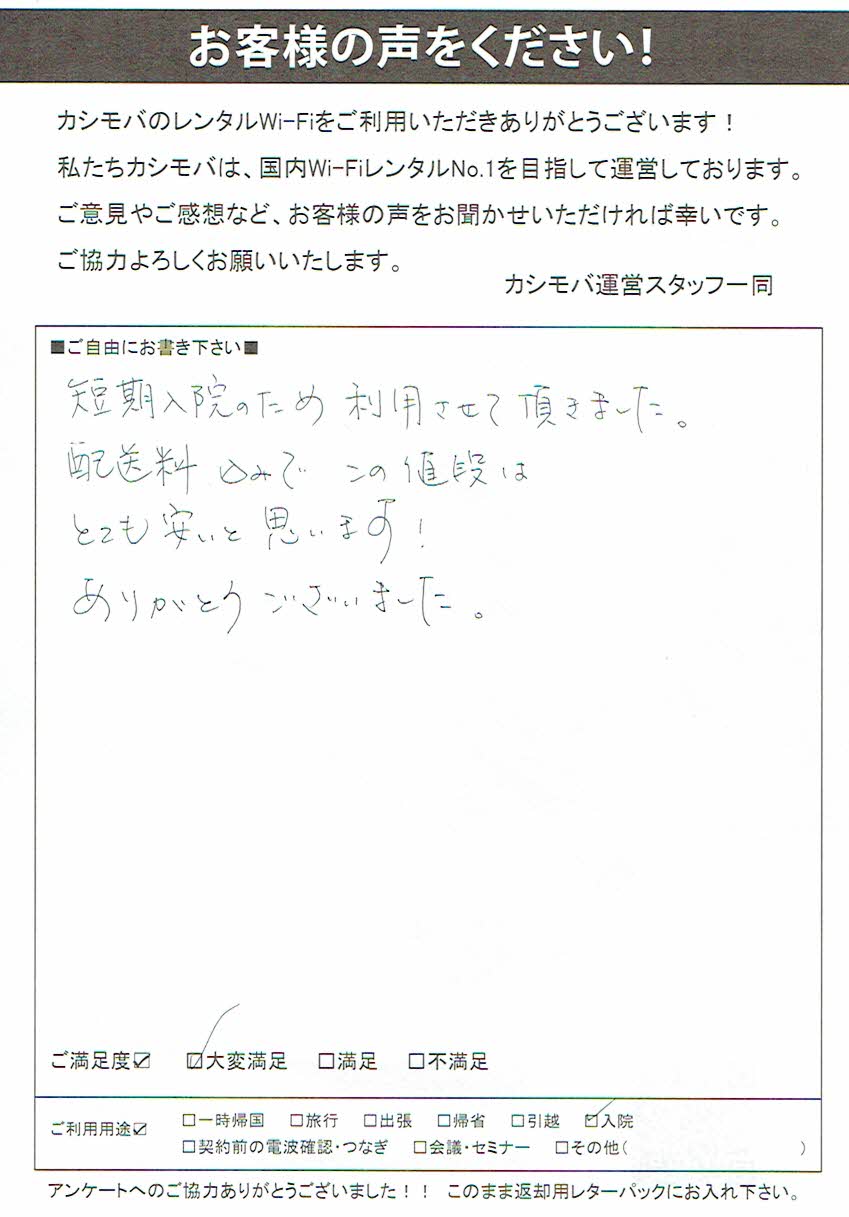 お客様の声をください!
カシモバのレンタルWi-Fiをご利用いただきありがとうございます！
私たちカシモバは、国内Wi-FiレンタルNo.1を目指して運営しております。
ご意見やご感想など、お客様の声をお聞かせいただければ幸いです。
ご協力よろしくお願いいたします。
カシモバ運営スタッフ一同
■ご自由にお書き下さい■
短期入院のため 利用させて頂きました。
配送料 込みで この値段は
とても安いと思います！
ありがとう ございました。
ご満足度☑ ☑大変満足 □満足 □不満足
ご利用用途☑ □一時帰国 □旅行 □出張 □帰省 □引越 ☑入院
□契約前の電波確認・つなぎ □会議・セミナー □その他( )
アンケートへのご協力ありがとうございました！！ このまま返却用レターパックにお入れ下さい。